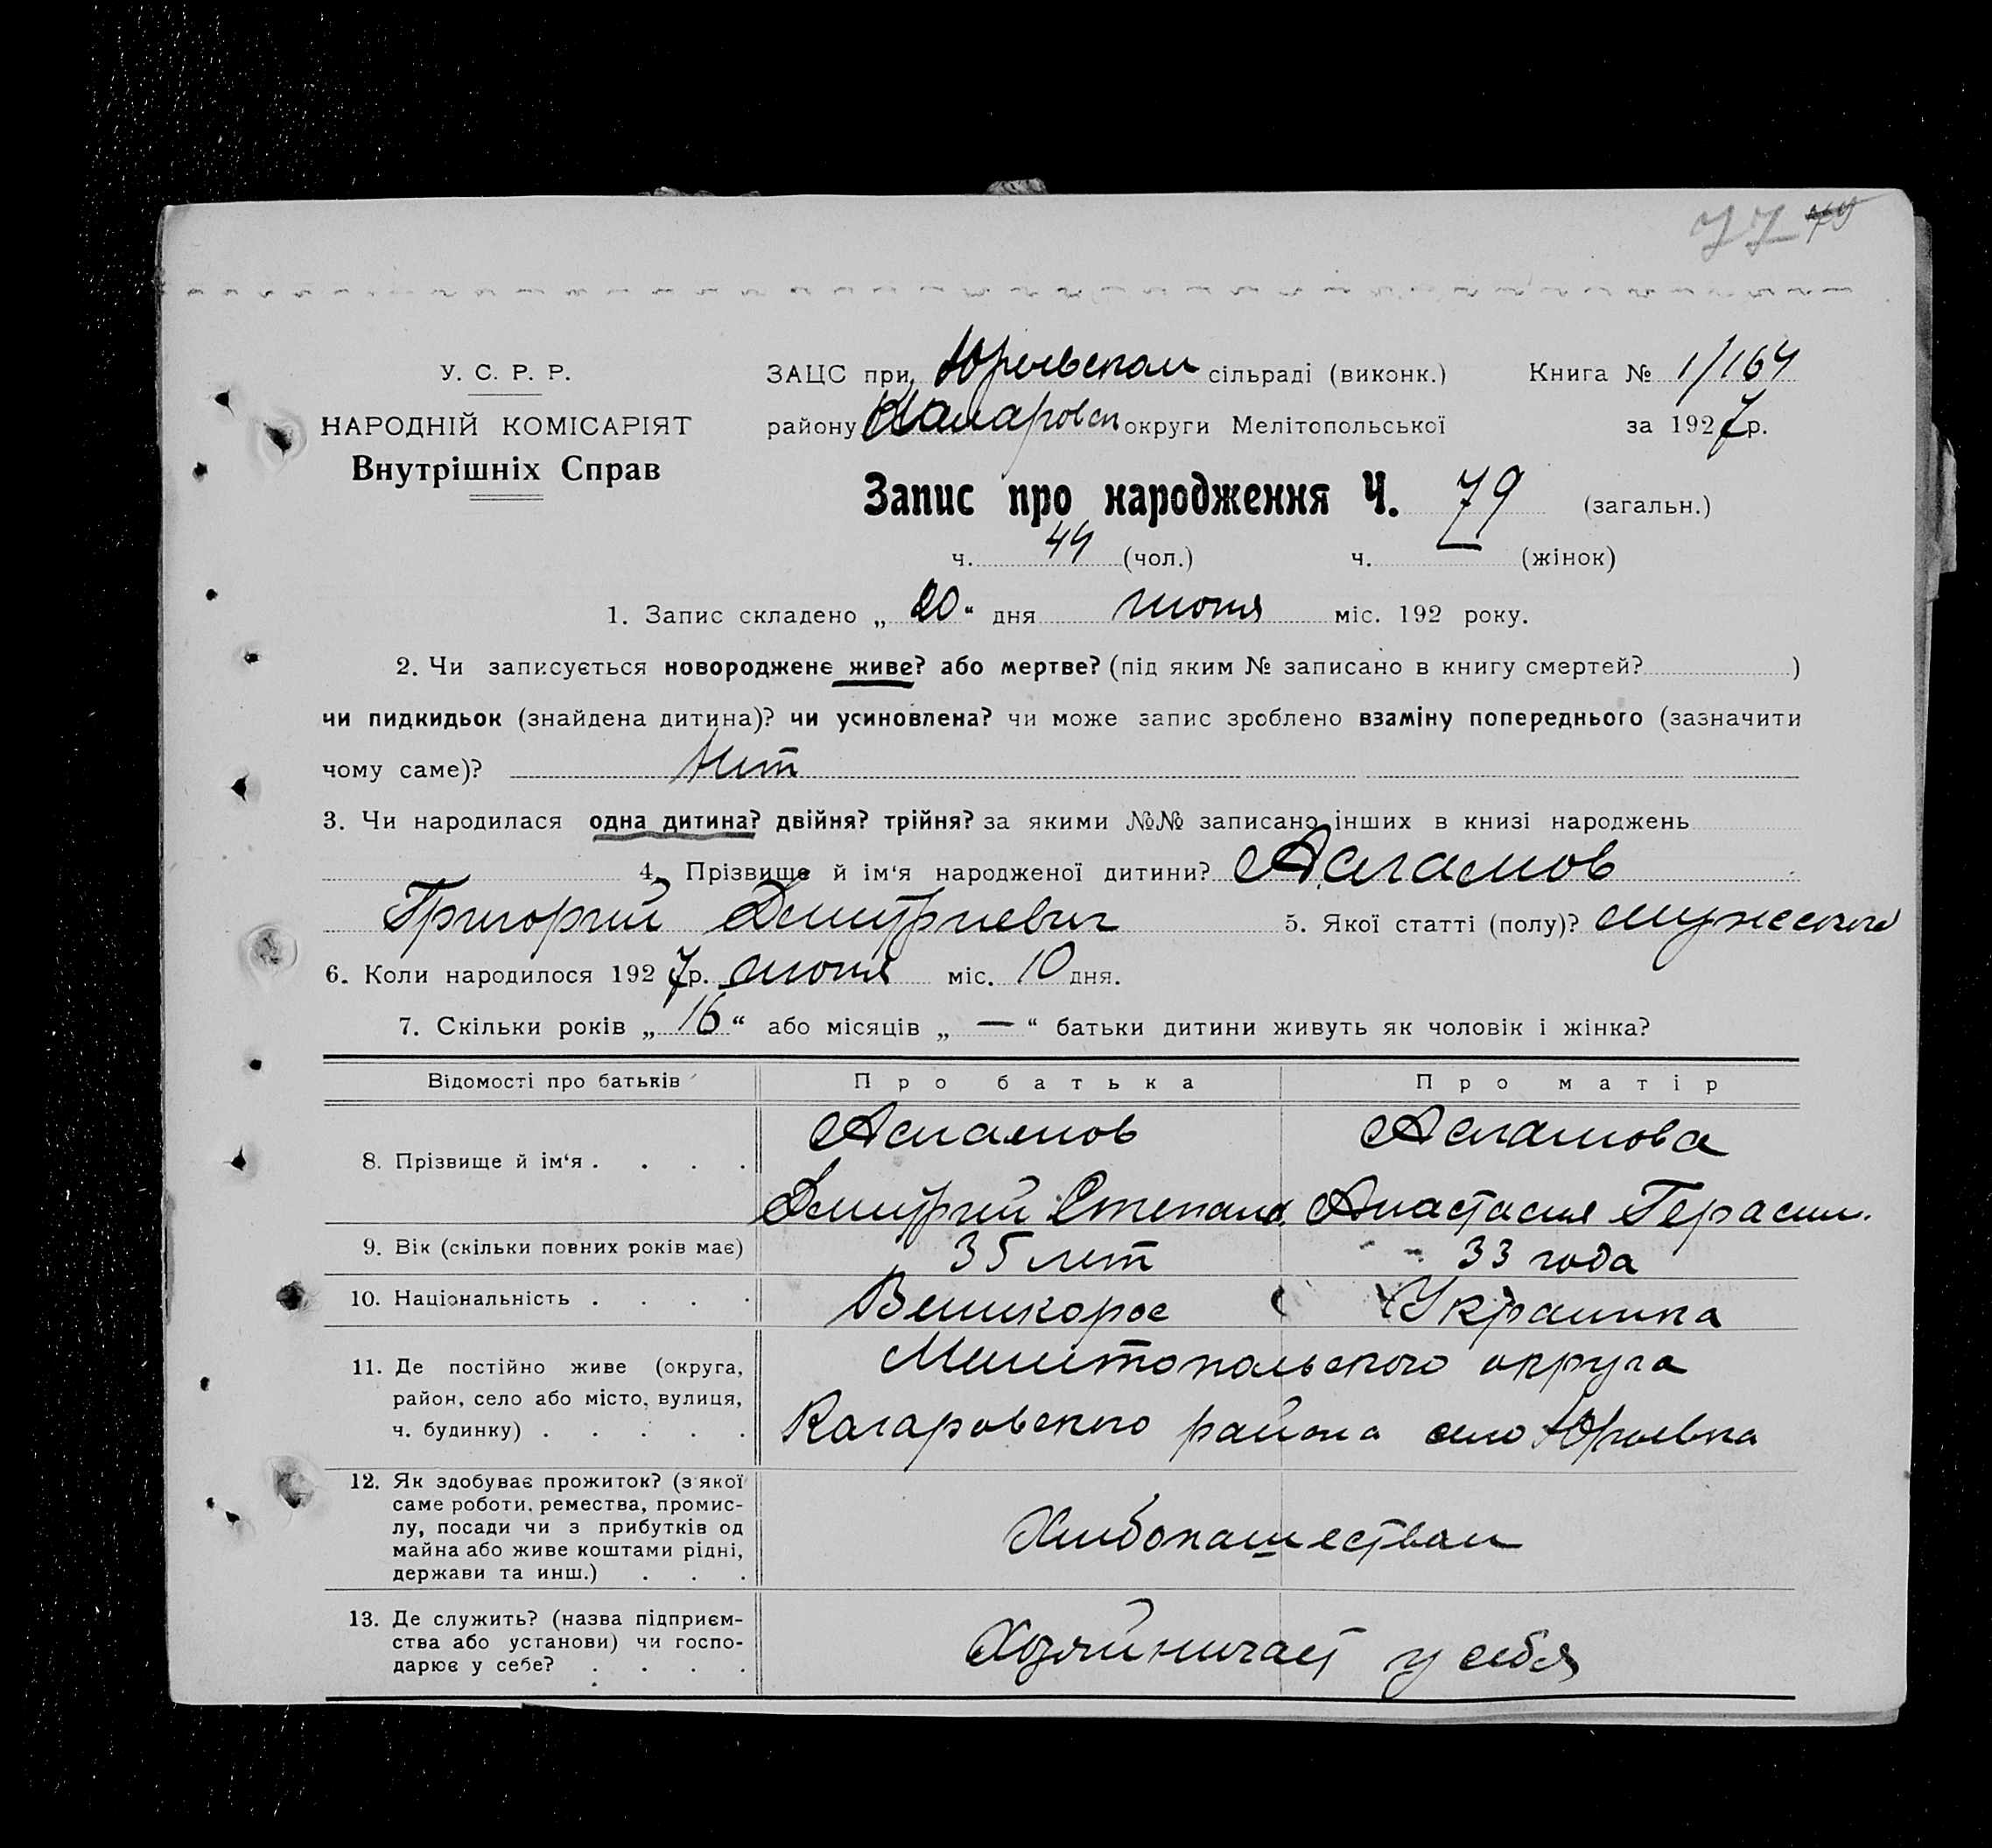 77 79
У. С. Р. Р.
НАРОДНІЙ КОМІСАРІЯТ
Внутрішніх Справ
ЗАЦС при Юрьевском сільраді (виконк.) Книга № 1/164
району округи Мелітопольської за 1927 р.
Запис про народження Ч. 79 (загальн.)
ч. 44 (чол.) ч. (жінок)
1. Запис складено „ 20 “ дня июня міс. 192 року.
2. Чи записується новороджене живе? або мертве? (під яким № записано в книгу смертей? )
чи пидкидьок (знайдена дитина)? чи усиновлена? чи може запис зроблено взаміну попереднього (зазначити
чому саме)? Нет
3. Чи народилася одна дитина? двійня? трійня? за якими №№ записано інших в книзі народжень
4. Прізвище й ім‘я народженої дитини? Асламов
Григорий Дмитриевич 5. Якої статті (полу)? мужского
6. Коли народилося 1927 р. июня міс. 10 дня.
7. Скільки років „ 16 “ або місяців „ — “ батьки дитини живуть як чоловік і жінка?
Відомості про батьків Про батька Про матір
8. Прізвище й ім‘я . . . . Асламов Асламова
Дмитрий Степано. Анастасия Герасим.
9. Вік (скільки повних років має) 35 лет 33 года
10. Національність . . . . Великорос Украинка
11. Де постійно живе (округа, Мелитопольского округа
район, село або місто, вулиця,
ч. будинку) . . . . . района село Юрьевка
12. Як здобуває прожиток? (з якої
саме роботи, ремества, промис-
лу, посади чи з прибутків од
майна або живе коштами рідні, Хлебопашеством
держави та инш.) . . .
13. Де служить? (назва підприєм-
ства або установи) чи госпо- Хозяйничает у себя
дарює у себе? . . . .